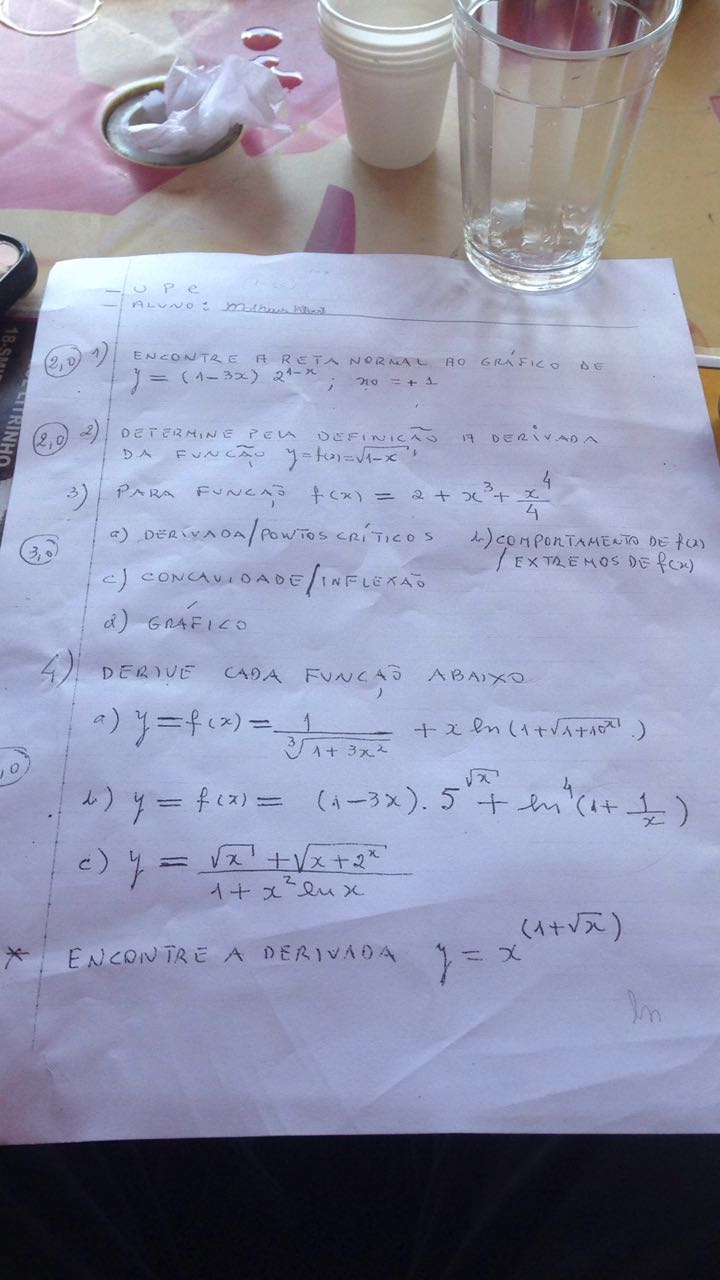 - U P E
- ALUNO:
(2,0) 1) ENCONTRE A RETA NORMAL AO GRÁFICO DE
y = (1-3x) 2^{1-x} ; x0 = +1
(2,0) 2) DETERMINE PELA DEFINIÇÃO A DERIVADA
DA FUNÇÃO y=f(x)=√(1-x)
3) PARA FUNÇÃO f(x) = 2 + x³ + x⁴/4
(3,0) a) DERIVADA/PONTOS CRÍTICOS b) COMPORTAMENTO DE f(x)
/ EXTREMOS DE f(x)
c) CONCAVIDADE/INFLEXÃO
d) GRÁFICO
4) DERIVE CADA FUNÇÃO ABAIXO
a) y = f(x) = 1/∛(1+3x²) + x ln(1+√(1+10^x))
,0) b) y = f(x) = (1-3x) . 5^{√x} + ln⁴(1+ 1/x)
c) y = (√x + √(x+2^x))/(1+x² ln x)
* ENCONTRE A DERIVADA y = x^{(1+√x)}
ln
18-SM
LITRINHO